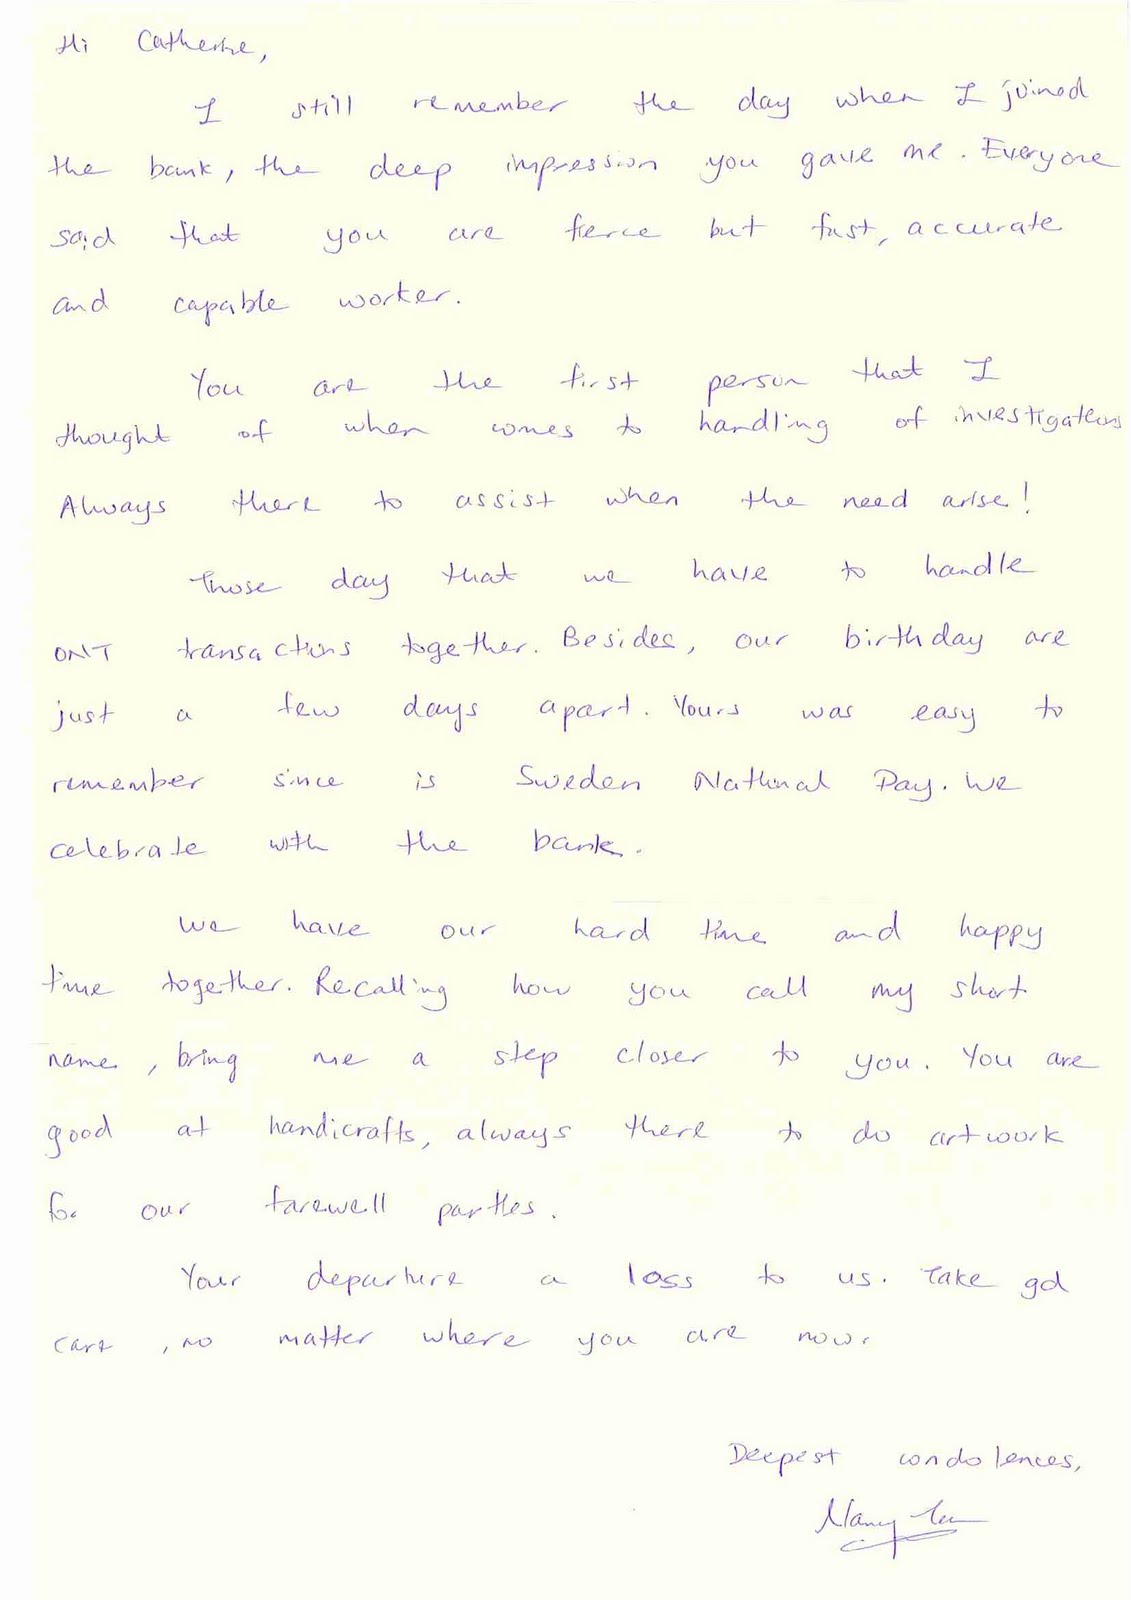 Hi Catherine,
I still remember the day when I joined
the bank, the deep impression you gave me. Everyone
said that you are fierce but fast, accurate
and capable worker.
You are the first person that I
thought of when comes to handling of investigations
Always there to assist when the need arise!
Those day that we have to handle
ONT transactions together. Besides, our birthday are
just a few days apart. Yours was easy to
remember since is Sweden National Day. We
celebrate with the bank.
We have our hard time and happy
time together. Recalling how you call my short
name, bring me a step closer to you. You are
good at handicrafts, always there to do artwork
for our farewell parties.
Your departure a loss to us. Take gd
care, no matter where you are now.
Deepest condolences,
Nancy